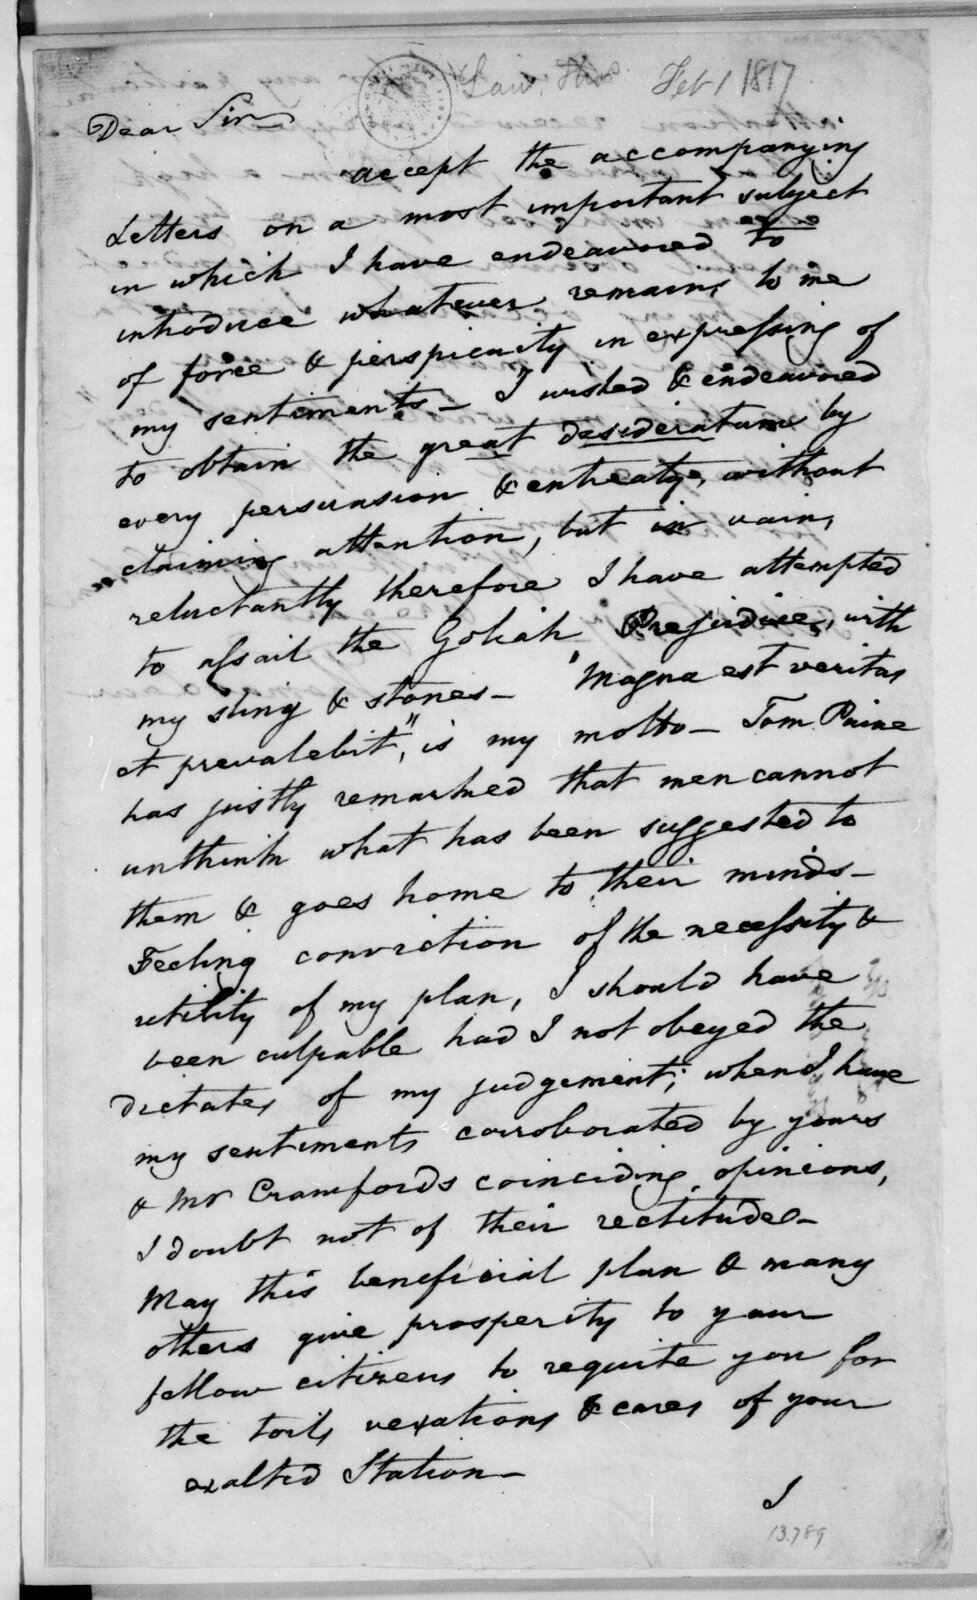 Law. Thos Feb 1 1817
Dear Sir
accept the accompanying
Letters on a most important subject
in which I have endeavored to
introduce whatever remains to me
of force & perspicuity in expressing of
my sentiments – I wished & endeavored
to obtain the great desideratum by
every persuasion & entreaty, without
claiming attention, but in vain,
reluctantly therefore I have attempted
to assail the Goliah Prejudice, with
my sling & stones – "Magna est veritas
et prevalebit", is my motto – Tom Paine
has justly remarked that men cannot
unthink what has been suggested to
them & goes home to their minds –
Feeling conviction of the necessity &
utility of my plan, I should have
been culpable had I not obeyed the
dictates of my judgement; when I have
my sentiments corroborated by yours
& Mr Crawfords coinciding opinions,
I doubt not of their rectitude –
May this beneficial plan & many
others give prosperity to your
fellow citizens to requite you for
the toils vexations & cares of your
exalted Station –
I
13.789